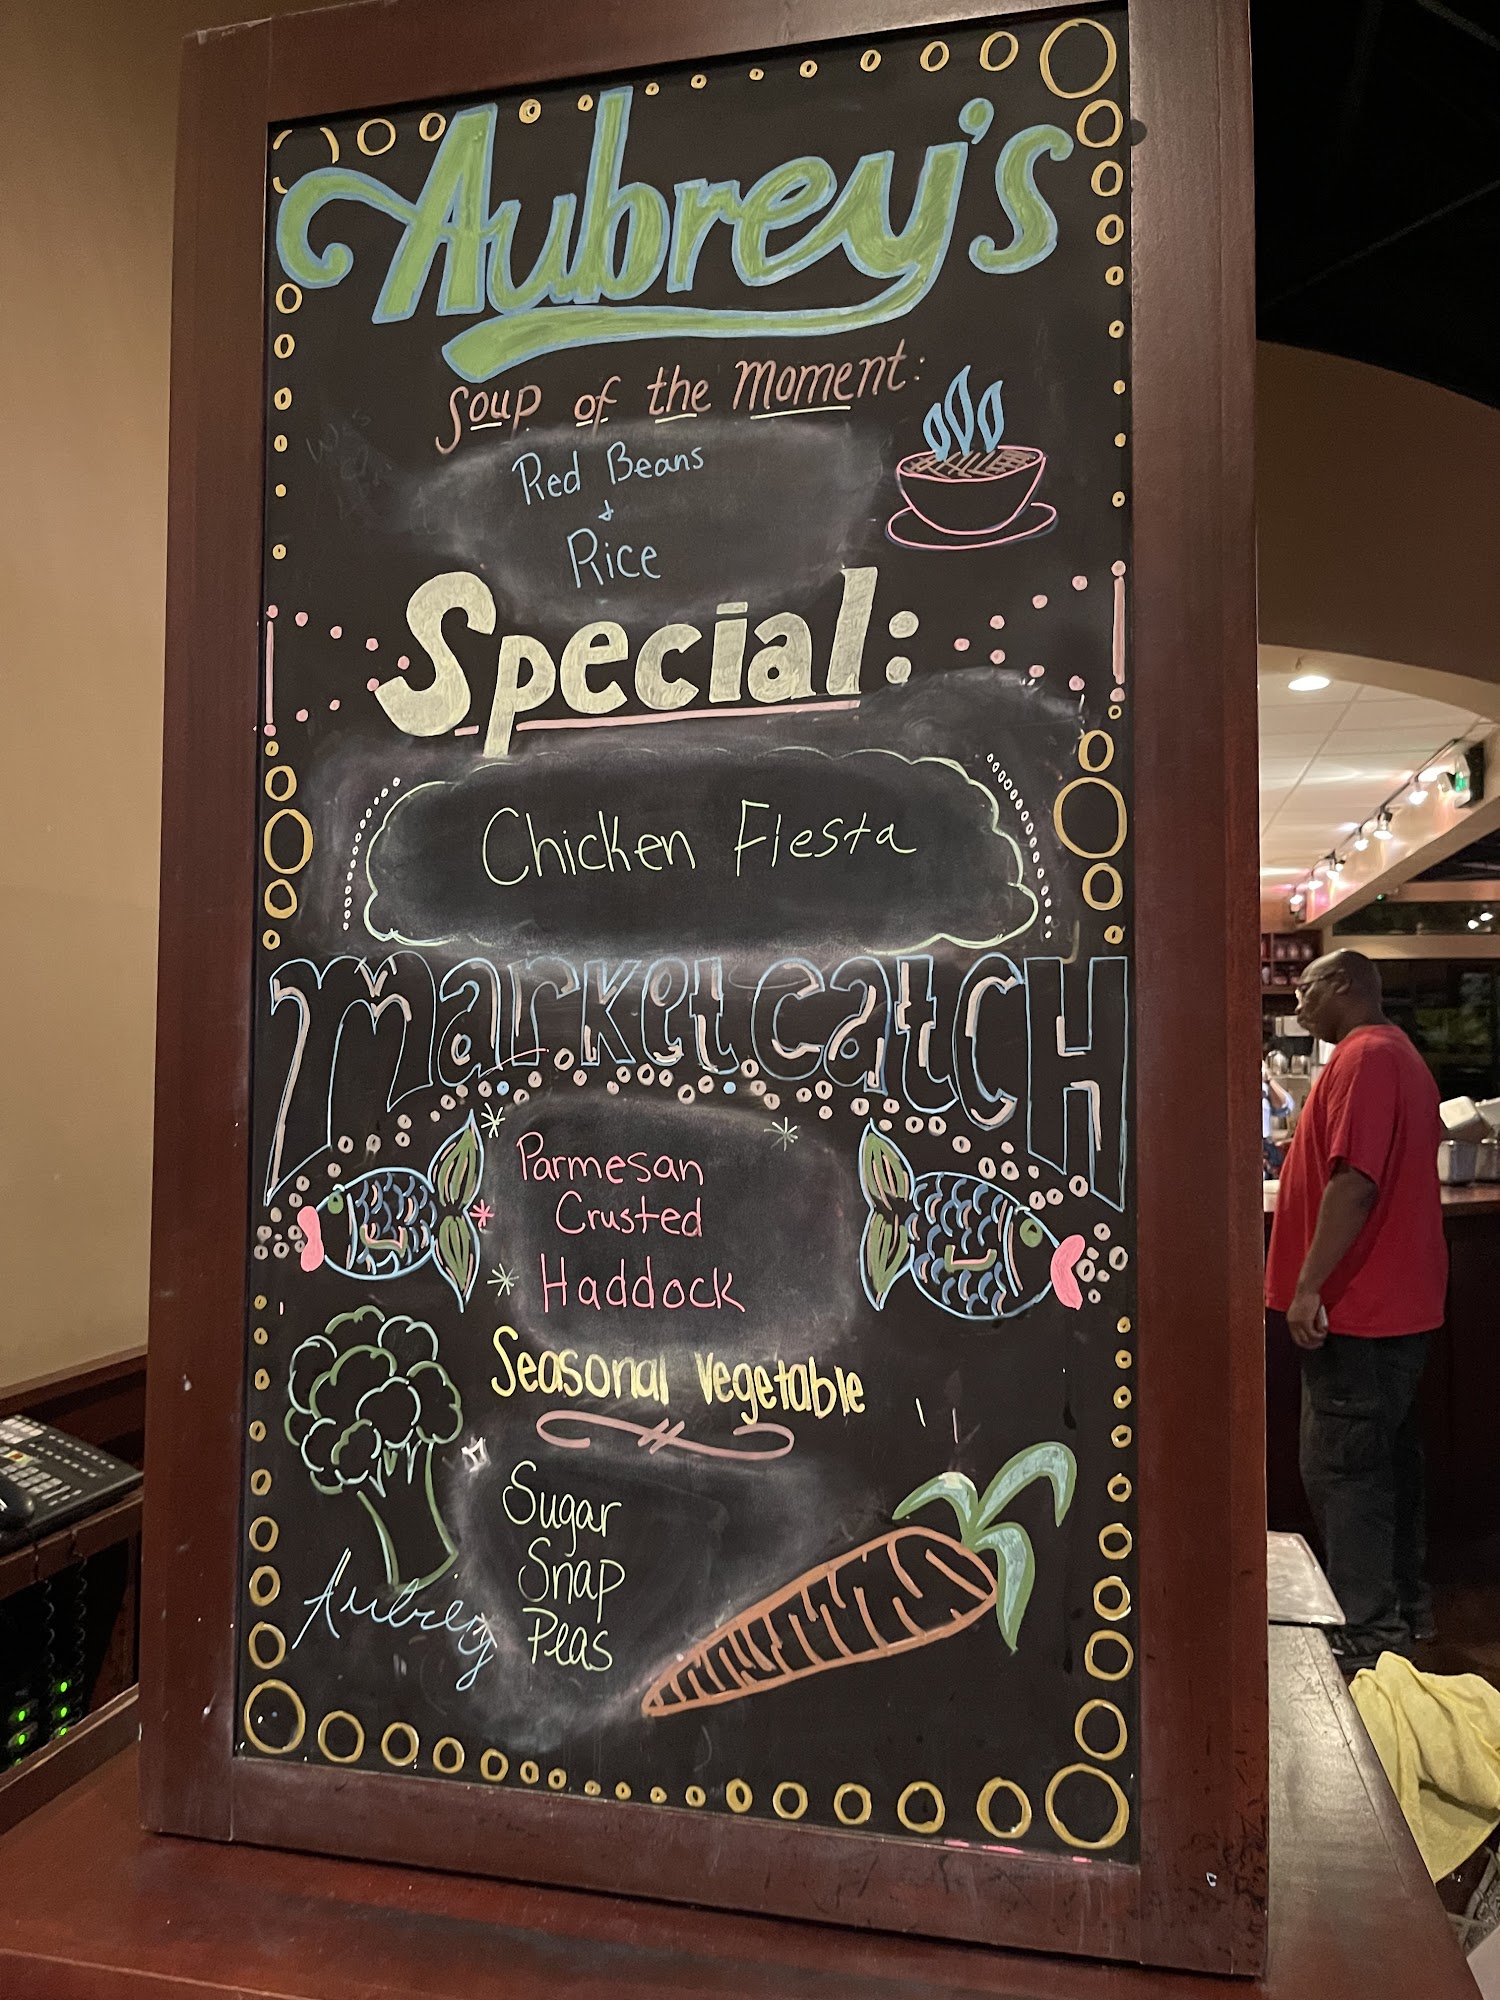 Aubrey's
Soup of the Moment:
Red Beans
&
Rice
Special:
Chicken Fiesta
Market Catch
Parmesan
Crusted
Haddock
Seasonal Vegetable
Sugar
Snap
Peas
Aubrey